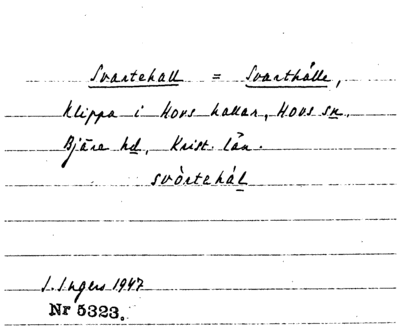 Svartehall = Svarthálle,
Klippa i Hovs hallar, Hovs sn.
Bjäre hd, Krist. län.
svòrtehál
I. Ingers 1947
Nr 5323.